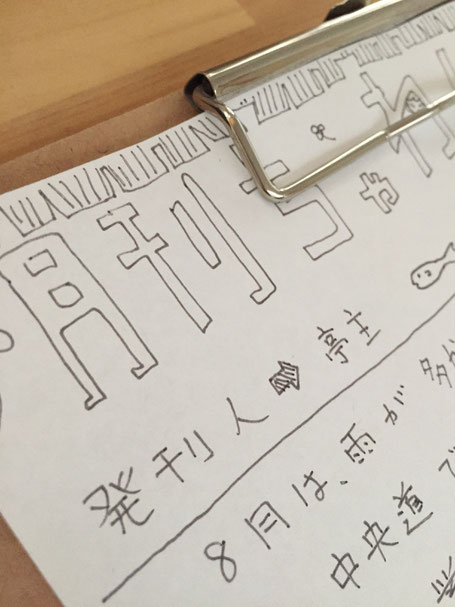 月刊ちゃ
発刊人 亭主
8月は、雨が多
中央道で